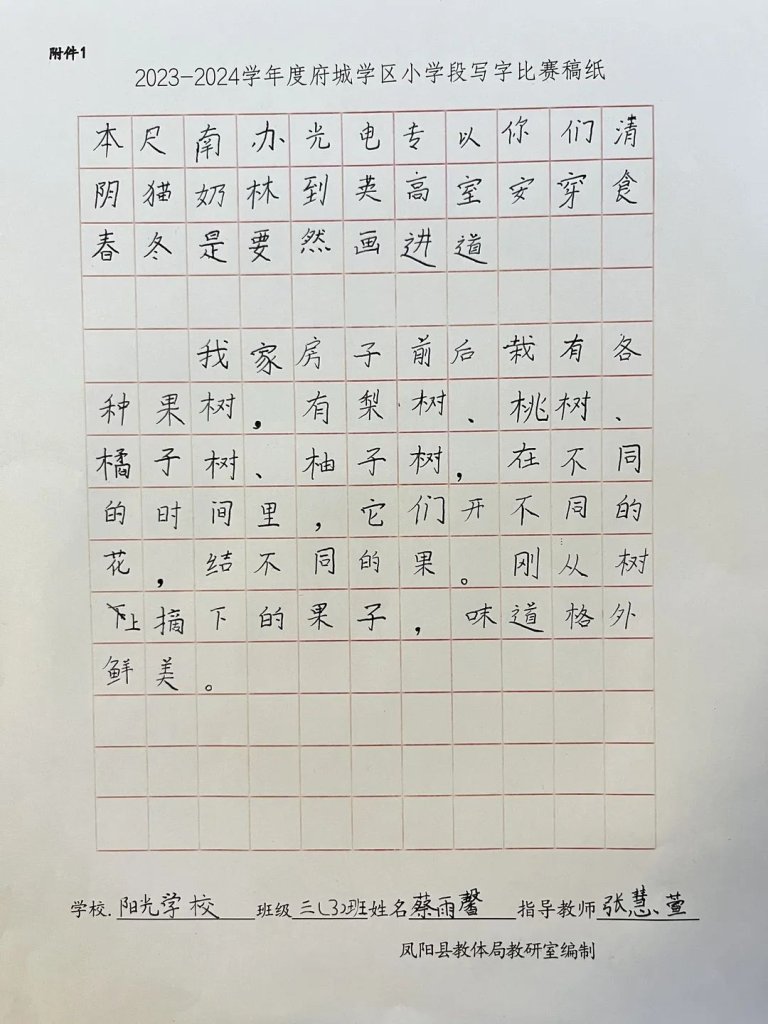 附件1
2023-2024学年度府城学区小学段写字比赛稿纸
本尺南办光电专以你们清
阴猫奶林到英高室安穿食
春冬是要然画进道
我家房子前后栽有各
种果树，有梨树、桃树、
橘子树、柚子树，在不同
的时间里，它们开不同的
花，结不同的果。刚从树
上摘下的果子，味道格外
鲜美。
学校.阳光学校 班级三(3)班姓名蔡雨馨 指导教师张慧萱
凤阳县教体局教研室编制